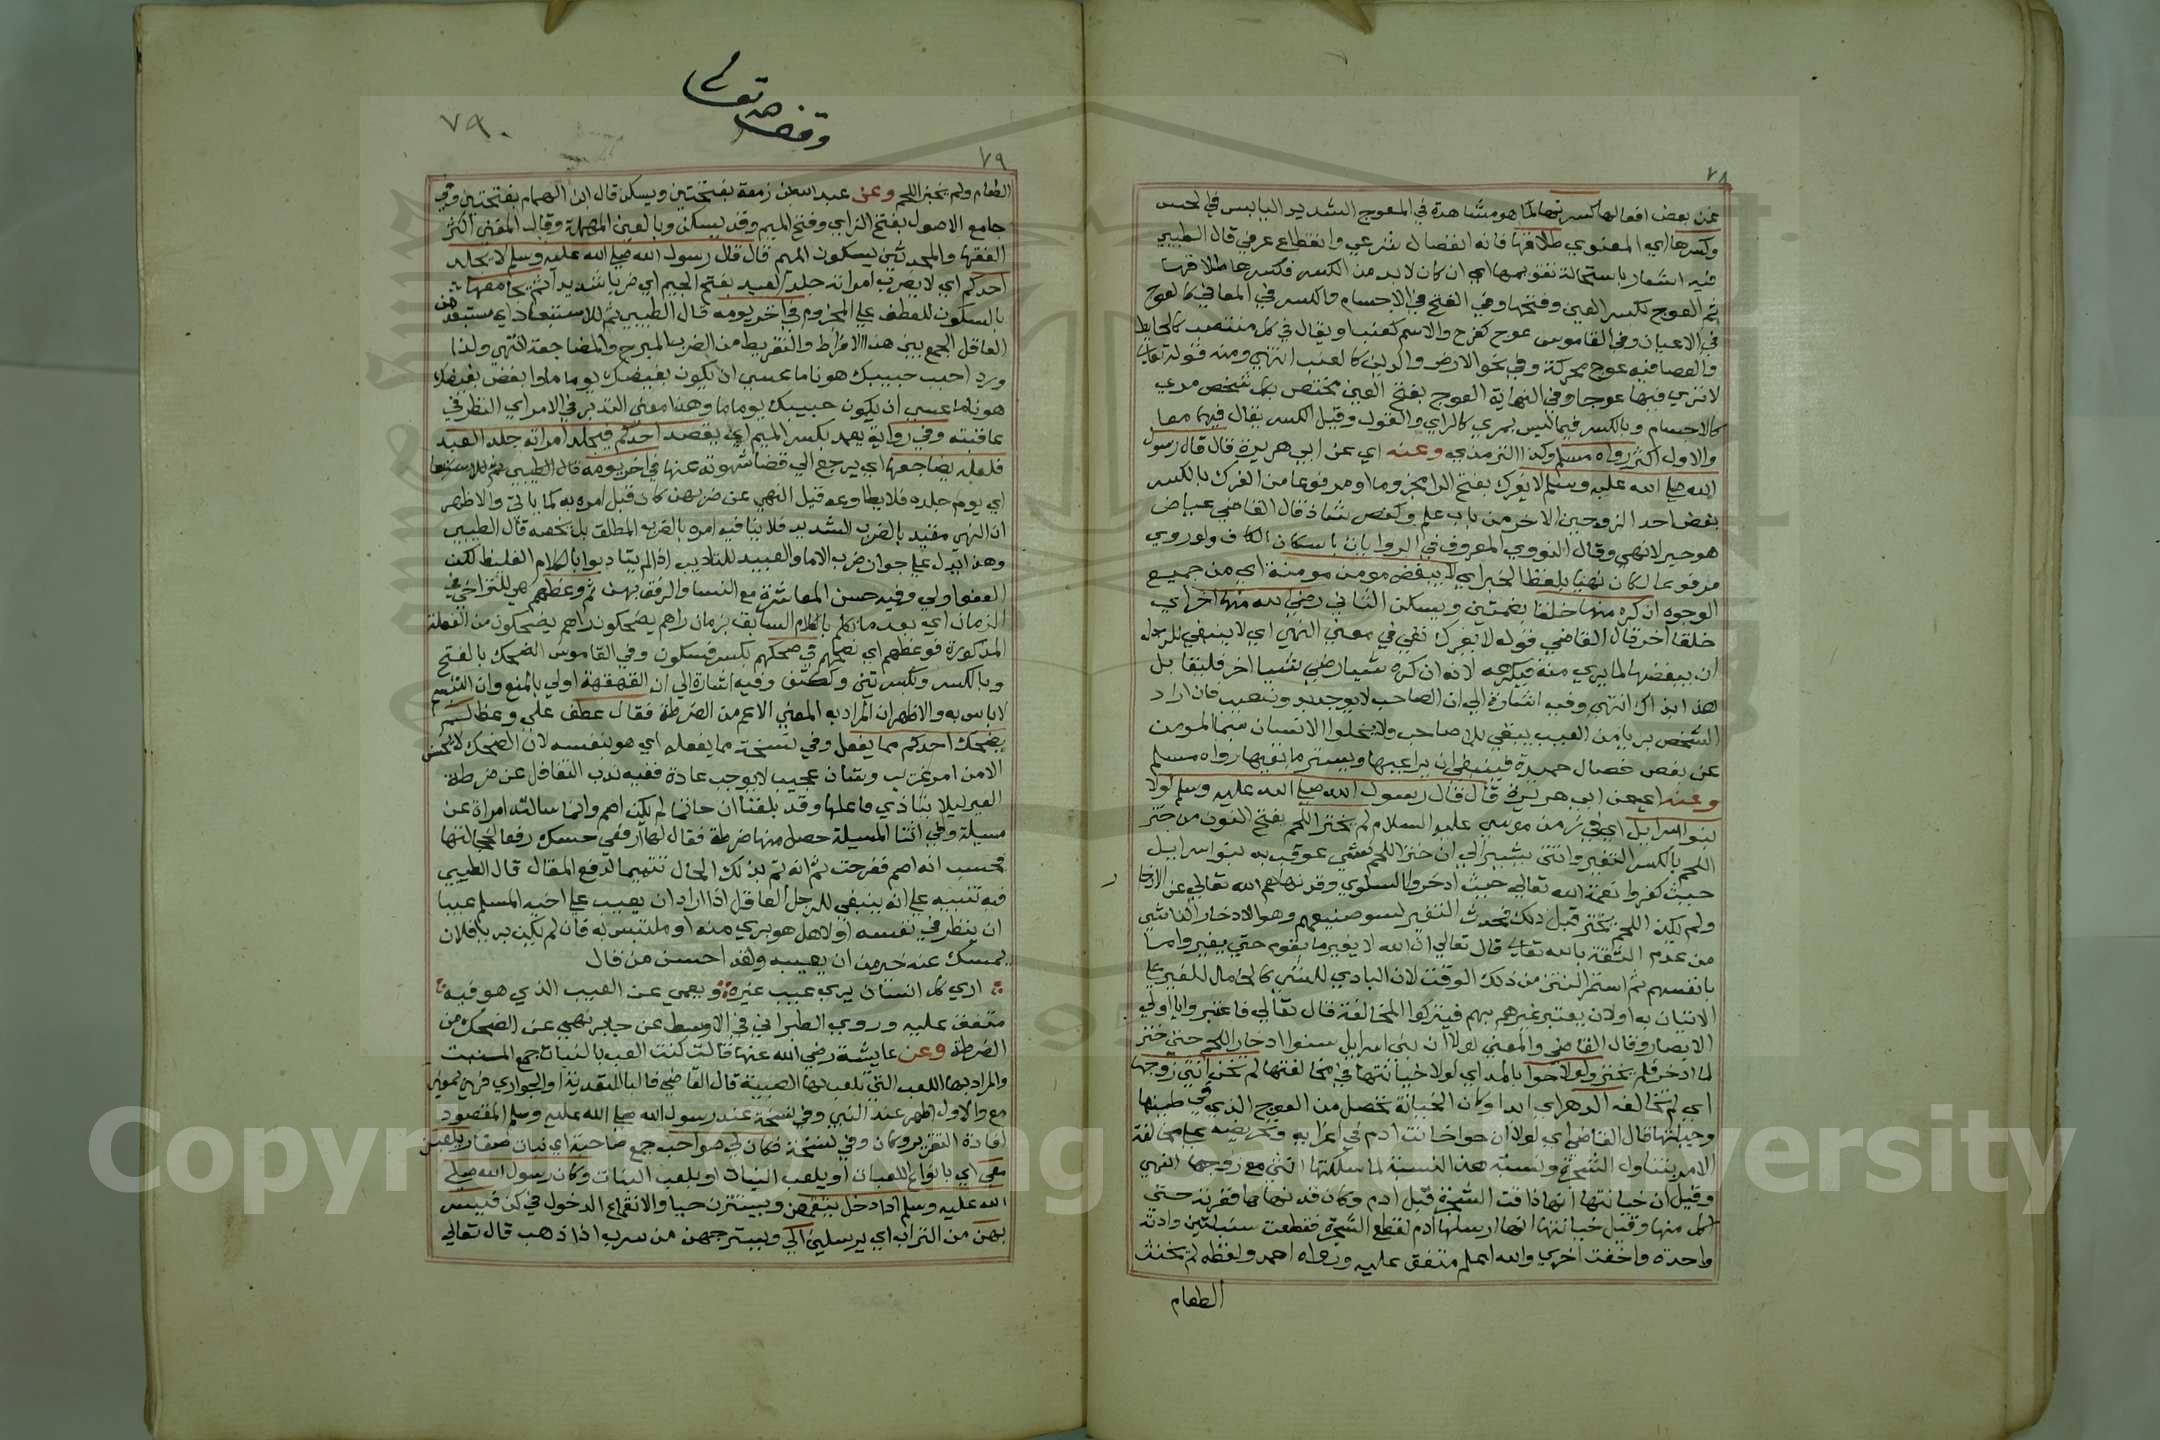 ٧٨
عن بعض افعالها كسرتها لما هو مشاهدة في المعوج الشديد اليابس في الحس
وكسرها اي المعنوي طلاقها فانه انفصال شرعي وانقطاع عرفي قال الطيبي
فيه اشعار باستحالة تقويمها اي ان كان لابد من الكسر فكسرها طلاقها
ثم العوج بكسر العين وفتحها وفي الفتح في الاجسام والكسر في المعاني كالعوج
في الاعيان وفي القاموس عوج كفرح والاسم كعنب او يقال في كل منتصب كالحايط
والعصا فيه عوج محركة وفي نحو الارض والدين كالعنب انتهى ومنه قوله تعالى
لا ترى فيها عوجا وفي النهاية العوج بفتح العين مختص بكل شخص مرءي
كالاجسام وبالكسر فيما ليس بمرءي كالراي والقول وقيل الكسر يقال فيهما معا
والاول اكثر رواه مسلم وكذا الترمذي وعنه اي عن ابي هريرة قال قال رسول
الله صلى الله عليه وسلم لا يفرك بفتح الرا مجزوما او مرفوعا من الفرك بالكسر
بغض احد الزوجين الاخر من باب علم وكنصر شاذ قال القاضي عياض
هو خبر لا نهي وقال النووي المعروف في الروايات باسكان الكاف ولو روي
مرفوعا لكان نهيا بلفظ الخبر اي لا يبغض مومن مومنة اي من جميع
الوجوه ان كره منها خلقا بضمتين ويسكن الثاني رضي لله منها اخر اي
خلقا اخر قال القاضي قوله لا يفرك نفي في معنى النهي اي لا ينبغي للرجل
ان يبغضها لما يرى منه فيكرهه لانه ان كره شيا رضي شيا اخر فليقابل
هذا بذاك انتهى وفيه اشارة الى ان الصاحب لا يوجد بدون عيب فان اراد
الشخص بريا من العيب يبقى بلا صاحب ولا يخلوا الانسان سيما المومن
عن بعض خصال حميدة فينبغي ان يراعيها ويستر ما بقيها رواه مسلم
وعنه اي عن ابي هريرة قال قال رسول الله صلى الله عليه وسلم لولا
بنوا اسرايل اي في زمن موسى عليه السلام لم يخنز اللحم بفتح النون من خنز
اللحم بالكسر التغير وانتن يشير الى ان خنز اللحم شي عوقب به بنوا اسرايل
حيث كفروا نعمة الله تعالى حيث ادخروا السلوى وقد نهاهم الله تعالى عن الادخار
ولم يكن اللحم يخنز قبل ذلك فحدث التغير لسو صنيعهم وهو الادخار الناشي
من عدم الثقة بالله تعالى قال تعالى ان الله لا يغير ما بقوم حتى يغيروا ما
بانفسهم ثم استمر النتن من ذلك الوقت لان البادي للشي كالحامل للغير على
الاتيان به اولان يعتبر غيرهم بهم فيتركوا المخالفة قال تعالى فاعتبروا يا اولي
الابصار وقال القاضي والمعنى لولا ان بني اسرايل سنوا ادخار اللحم حتى خنز
لما ادخر فلم يخنز ولولا حوا بالمد اي لولا خيانتها في مخالفتها لم تخن انثى زوجها
اي لم تخالفه الدهر اي ابدا وكان الخيانة تحصل من العوج الذي في طينها
وجبلتها قال القاضي اي لولا ان حوا خانت ادم في اغرايه وتحريضه على مخالفة
الامر بتناول الشجرة وسنت هذه السنة لما سلكتها انثى مع زوجها انتهى
وقيل ان خيانتها انها ذاقت الشجرة قبل ادم وكان قد نهاها فغرته حتى
اكل منها وقيل خيانتها انها ارسلها ادم لقطع الشجرة فقطعت سنبلتين وادته
واحدة واخفت اخرى والله اعلم متفق عليه ورواه احمد ولفظه لم يخنث
الطعام
وقف لله تعالى
٧٩٠
٧٩
الطعام ولم يخنز اللحم وعن عبد الله بن زمعة بفتحتين ويسكن قال ابن الهمام بفتحتين وفي
جامع الاصول بفتح الزاي وفتح الميم وقد يسكن وبالعين المهملة وقال المغني اكثر
الفقها والمحدثين يسكون الميم قال قال رسول الله صلى الله عليه وسلم لا يجلد
احدكم اي لا يضرب امراته جلد العبد بفتح الجيم اي ضربا شديدا ثم يجامعها
بالسكون للعطف على المجزوم في اخر يومه قال الطيبي ثم للاستبعاد اي مستبعد من
العاقل الجمع بين هذا الافراط والتفريط من الضرب المبرح والمضاجعة انتهى ولذا
ورد احبب حبيبك هونا ما عسى ان يكون بغيضك يوما ما وابغض بغيضك
هونا ما عسى ان يكون حبيبك يوما ما وهذا معنى التدبر في الامر اي النظر في
عاقبته وفي رواية يعمد بكسر الميم اي يقصد احدكم فيجلد امراته جلد العبد
فلعله يضاجعها اي يرجع الى قضا شهوته عنها في اخر يومه قال الطيبي ثم للاستبعاد
اي يوم جلده فلا يطاوعه قيل النهي عن ضربهن كان قبل امره به كما ياتي والاظهر
ان النهي مقيد بالضرب الشديد فلا ينافيه امره بالضرب المطلق بل يخصه قال الطيبي
وهذا يدل على جواز ضرب الاما والعبيد للتاديب اذا لم يتادبوا بالكلام الغليظ لكن
العفو اولى وفيه حسن المعاشرة مع النسا والرفق بهن ثم وعظهم هي للتراخي في
الزمان اي بعد ما تكلم بالكلام السابق بزمان راهم يضحكون راهم يضحكون من الفعلة
المذكورة فوعظهم اي نصحهم في ضحكهم بكسر فسكون وفي القاموس الضحك بالفتح
وبالكسر وبكسرتين وككتف وفيه اشارة الى ان القهقهة اولى بالمنع وان التبسم
لا باس به والاظهر ان المراد به المعنى الاعم من الضرطة فقال عطف على وعظ لم
يضحك احدكم مما يفعل وفي نسخة مما يفعله اي هو بنفسه لان الضحك لا يحسن
الا من امر غريب وشان عجيب لا يوجب عادة ففيه ندب التغافل عن ضرطة
الغير ليلا يتاذى فاعلها وقد بلغنا ان حاتما لم يكن اصم وانما سالته امراة عن
مسيلة وفي اثنا المسيلة حصل منها ضرطة فقال لها ارفعي حسك رفعا لخجالتها
فحسبت انه اصم ففرحت ثم انه تم بذلك الحال تتميما لدفع المقال قال الطيبي
فيه تنبيه على انه ينبغي للرجل العاقل اذا اراد ان يعيب على اخيه المسلم عيبا
ان ينظر في نفسه اولا هل هو بري منه او ملتبس به فان لم يكن بريا فلان
يمسك عنه خير من ان يعيبه ولقد احسن من قال
ارى كل انسان يرى عيب غيره ويعمى عن العيب الذي هو فيه
متفق عليه وروى الطبراني في الاوسط عن جابر نهى عن الضحك من
الضرطة وعن عايشة رضي الله عنها قالت كنت العب بالبنات جمع البنت
والمراد بها اللعب التي يلعب بها الصبية قال القاضي فالبا للتعدية او الجواري فهي بمعنى
مع والاول اظهر عند النبي وفي نسخة عند رسول الله صلى الله عليه وسلم المقصود
افادة التقرير وكان وفي نسخة فكان لي صواحب جمع صاحبة اي بنات صغار يلعبن
معي اي بانواع اللعبات او يلعب البنات او يلعب البنات وكان رسول الله صلى
الله عليه وسلم اذا دخل ينقمعن ويستترن حيا والانقماع الدخول في كن فيسر
بهن من التراب اي يرسلهن الي ويسترجهن من سرب اذا ذهب قال تعالى
Copyright © King Saud University